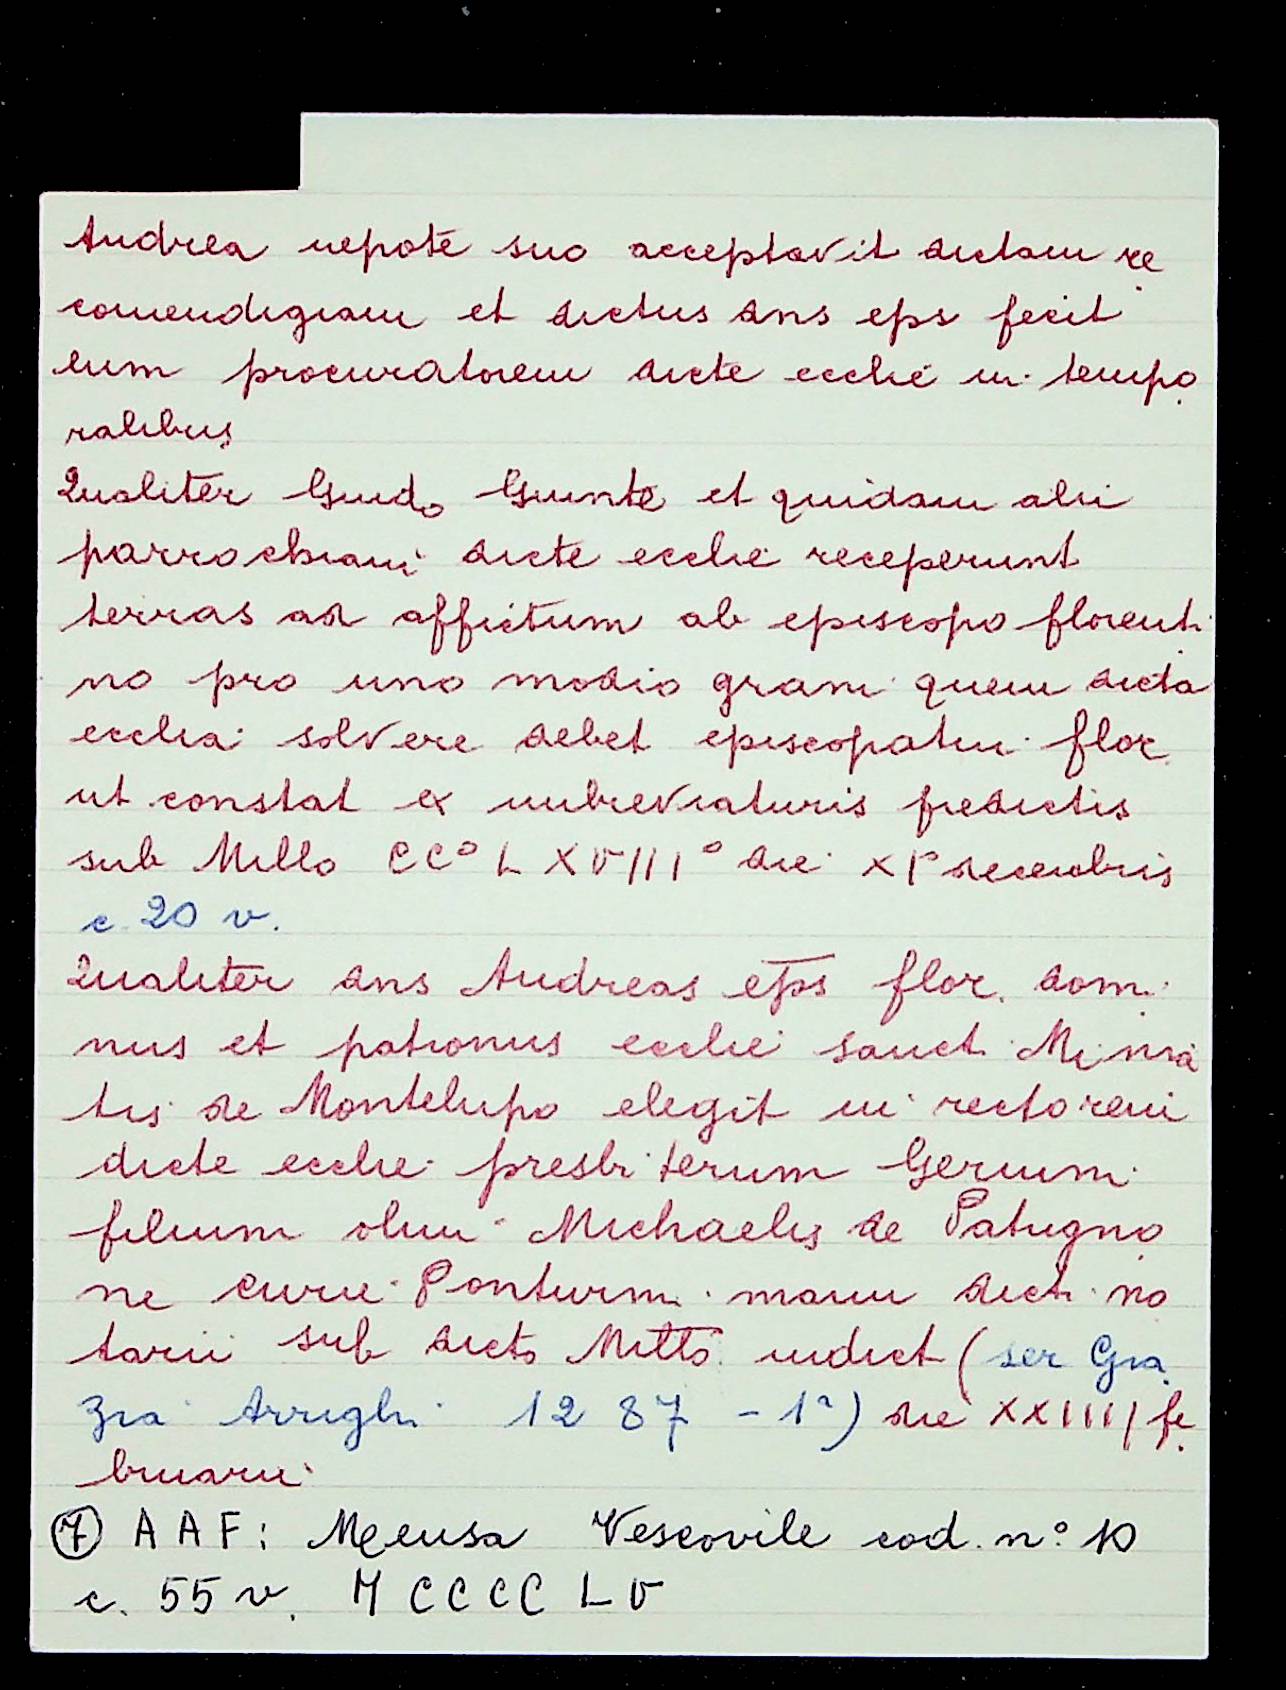 Andrea nepote suo acceptavit dictam re
comendigiam et dictus dns eps fecit
eum procuratorem dicte ecclie in tempo
ralibus
Qualiter Guido Giunte et quidam alii
parrochiani dicte ecclie receperunt
terras ad affictum ab episcopo florenti
no pro uno modio grani quem dicta
ecclia solvere debet episcopatui flor.
ut constat ex imbreviaturis predictis
sub Millo CC° LXVIII° die XI° decembris
c. 20 v.
Qualiter dns Andreas eps flor. domi
nus et patronus ecclie sancti Minia
tis de Montelupo elegit in rectorem
dicte ecclie presbiterum Gerium
filium olim Michaelis de Patigno
ne curie Ponturmi manu dicti no
tarii sub dicto Mitto indict (ser Gra
zia Arrighi 1287 - 1ª) die XXIIII fe
bruarii
(7) AAF: Mensa Vescovile cod. n° 10
c. 55 v. MCCCCLV